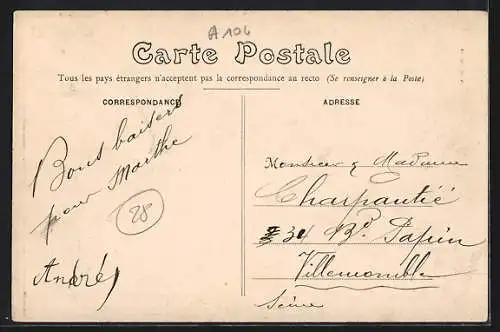 A 106
Carte Postale
Tous les pays étrangers n'acceptent pas la correspondance au recto (Se renseigner à la Poste)
CORRESPONDANCE
Bons baisers
pour Marthe
28
André
ADRESSE
Monsieur & Madame
Charpantié
31 Bd Papin
Villemomble
Seine